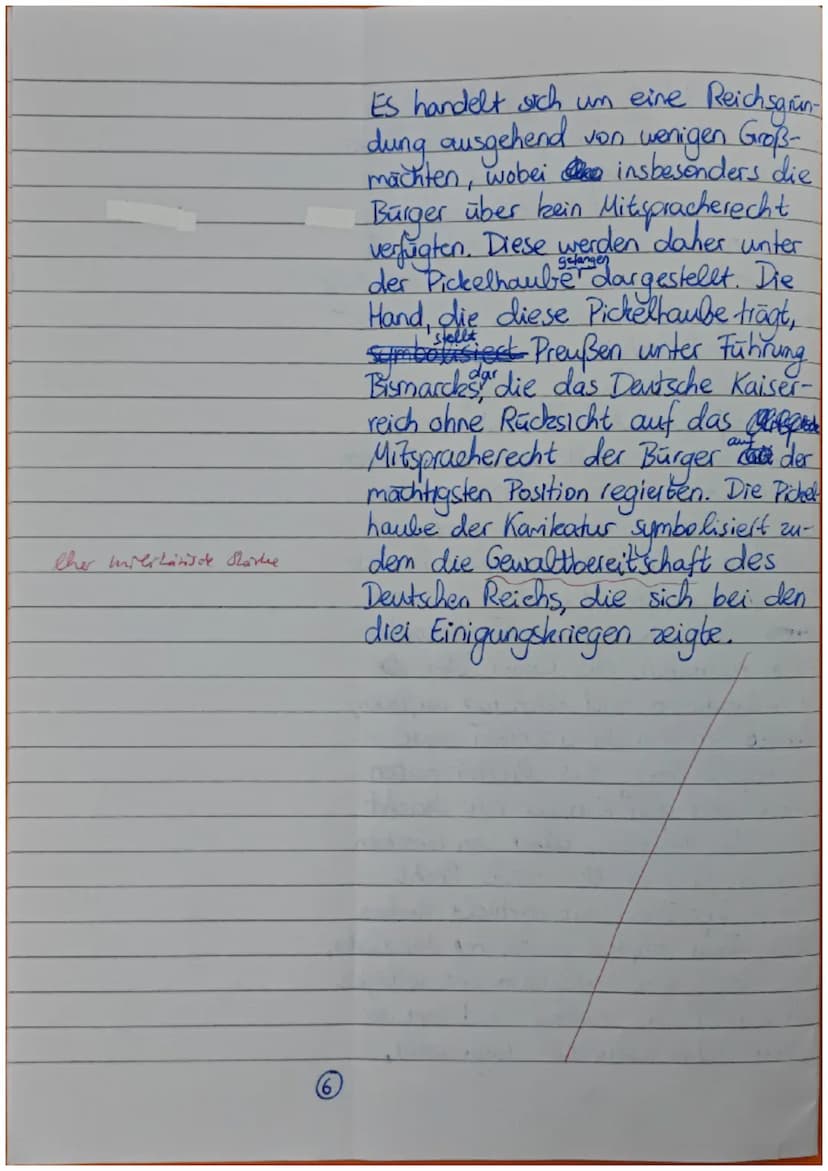 Es handelt sich um eine Reichsgrün-
dung ausgehend von wenigen Groß-
mächten, wobei insbesonders die
Bürger über kein Mitspracherecht
verfügten. Diese werden daher unter
der Pickelhaube gefangen dargestellt. Die
Hand, die diese Pickelhaube trägt,
symbolisiert stellt Preußen unter Führung
Bismarcks dar, die das Deutsche Kaiser-
reich ohne Rücksicht auf das
Mitspracherecht der Bürger auf der
mächtigsten Position regierten. Die Pickel-
haube der Karikatur symbolisiert zu-
eher militärische Stärke
dem die Gewaltbereitschaft des
Deutschen Reichs, die sich bei den
drei Einigungskriegen zeigte.
6